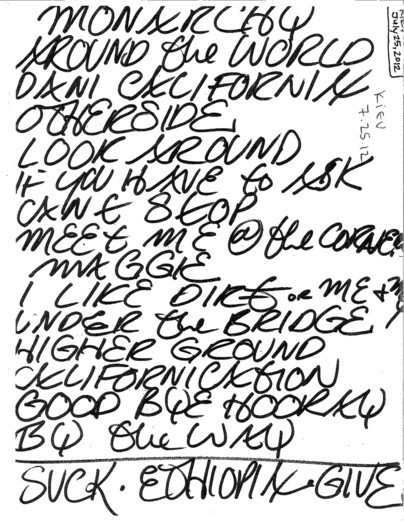 MONARCHY
AROUND the WORLD
DANI CALIFORNIA
OTHERSIDE
LOOK AROUND
IF YOU HAVE to ASK
CANt StOP
MEEt ME @ the CORNER
MAGGIE
I LIKE DIRt OR ME +
UNDER the BRIDGE /
HIGHER GROUND
CALIFORNICAtION
GOOD BYE HOORAY
BY the WAY
SUCK. EtHIOPIA. GIVE
July 25, 2012
KIEV
7.25.12